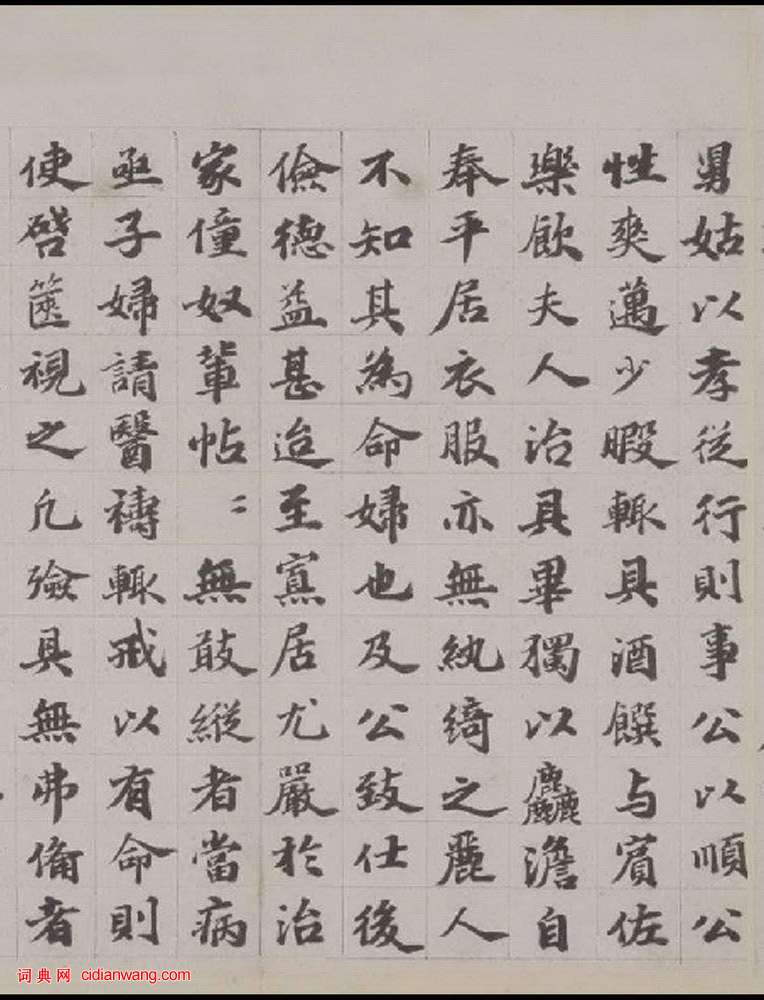 舅姑以孝從行則事公以順公
性爽邁少暇輒具酒饌与賓佐
樂飲夫人治具畢獨以麤澹自
奉平居衣服亦無紈綺之麗人
不知其為命婦也及公致仕後
儉德益甚迨至寡居尤嚴於治
家僮奴輩帖〻無敢縱者當病
亟子婦請醫禱輒戒以有命則
使啓篋視之凡殮具無弗俻者
词典网 cidianwang.com